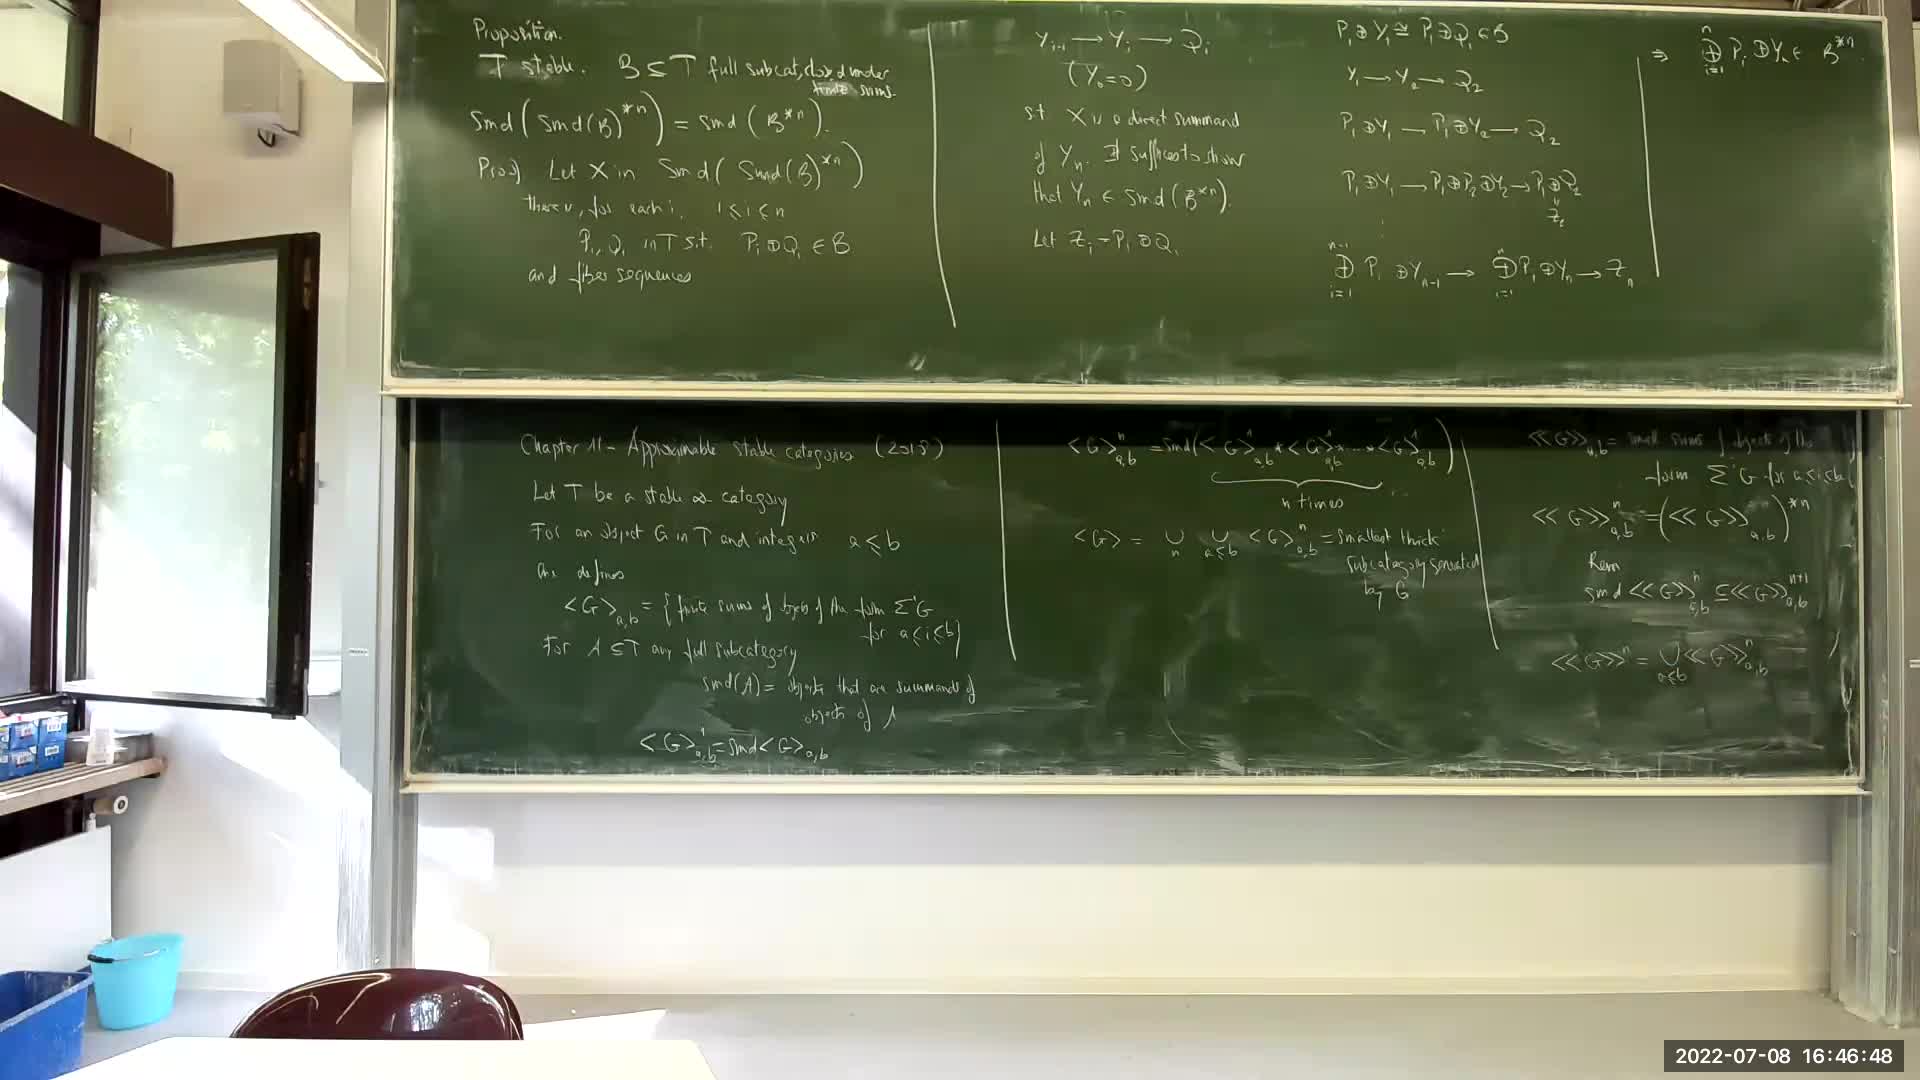 Proposition.
T stable. B ⊆ T full subcat, closed under
finite sums.
Smd(Smd(B)^{*n}) = Smd(B^{*n}).
Proof Let X in Smd(Smd(B)^{*n})
there is, for each i, 1 ≤ i ≤ n
P_i, Q_i in T s.t. P_i ⊕ Q_i ∈ B
and fiber sequences
Y_{i-1} → Y_i → Q_i
(Y_0 = 0)
st X is a direct summand
of Y_n. It suffices to show
that Y_n ∈ Smd(B^{*n}).
Let Z_i = P_i ⊕ Q_i
P_1 ⊕ Y_1 ≅ P_1 ⊕ Q_1 ∈ B
Y_1 → Y_2 → Q_2
P_1 ⊕ Y_1 → P_1 ⊕ Y_2 → Q_2
P_1 ⊕ Y_1 → P_1 ⊕ P_2 ⊕ Y_2 → P_2 ⊕ Q_2
= Z_2
⋮
⊕_{i=1}^{n-1} P_i ⊕ Y_{n-1} → ⊕_{i=1}^{n} P_i ⊕ Y_n → Z_n
⇒ ⊕_{i=1}^{n} P_i ⊕ Y_n ∈ B^{*n}.
Chapter 11 - Approximable stable categories (2018)
Let T be a stable ∞ category
For an object G in T and integers a ≤ b
one defines
<G>_{a,b} = {finite sums of objects of the form Σ^i G
for a ≤ i ≤ b}
For A ⊆ T any full subcategory
smd(A) = objects that are summands of
objects of A
<G>^1_{a,b} = smd<G>_{a,b}
<G>^n_{a,b} = smd(<G>^1_{a,b} * <G>^1_{a,b} * ... * <G>^1_{a,b})
n times
<G> = ∪_n ∪_{a≤b} <G>^n_{a,b} = smallest thick
subcategory generated
by G
<<G>>_{a,b} = small sums of objects of the
form Σ^i G for a ≤ i ≤ b}
<<G>>^n_{a,b} = (<<G>>_{a,b})^{*n}
Rem
smd <<G>>^n_{a,b} ⊆ <<G>>^{n+1}_{a,b}
<<G>>^n = ∪_{a≤b} <<G>>^n_{a,b}
2022-07-08 16:46:48